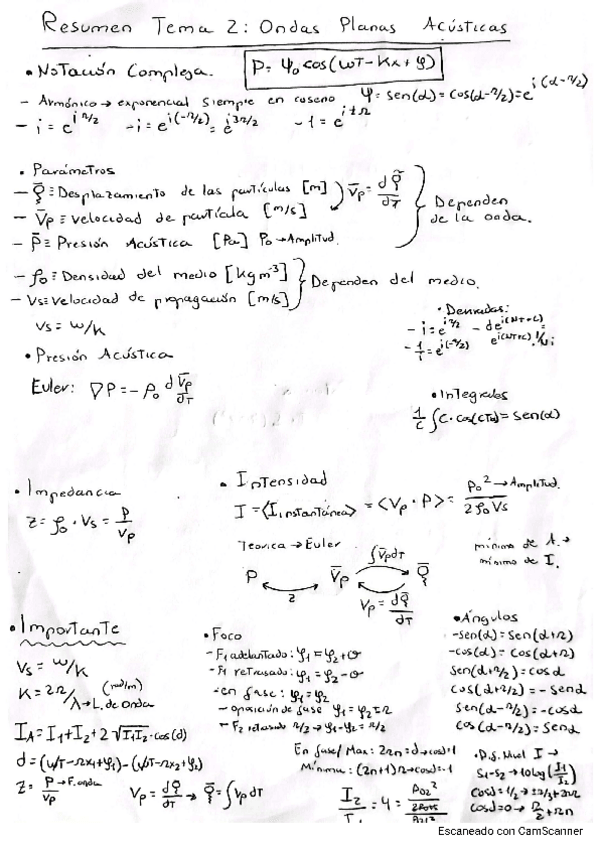 Resumen Tema 2: Ondas Planas Acústicas
• Notación Compleja. P = ψ₀ cos(ωT - Kx + φ)
- Armónico → exponencial siempre en coseno φ = sen(α) = cos(α-π/2) = e^i(α-π/2)
- i = e^iπ/2 -i = e^i(-π/2) = e^i3π/2 -1 = e^i±π
• Parámetros
- Ψ̄ ≡ Desplazamiento de las partículas [m]
V̄p = dΨ̄/dT
- V̄p ≡ velocidad de partícula [m/s]
Dependen de la onda.
- P̄ ≡ Presión Acústica [Pa] P₀ → Amplitud.
- ρ₀ ≡ Densidad del medio [kg m⁻³]
Dependen del medio.
- Vs ≡ velocidad de propagación [m/s]
Vs = ω/K
• Derivadas:
- i = e^iπ/2
• Presión Acústica
Euler: ∇P = -ρ₀ dV̄p/dT
• Integrales
1/C ∫C·cos(CTα) = sen(α)
• Impedancia
Z = ρ₀ · Vs = P/Vp
• Intensidad
I = <I instantánea> = <Vp · P> = P₀² → Amplitud. / 2ρ₀Vs
Teorica → Euler
mínimo de A. →
mínimo de I.
P ↔ V̄p ∫V̄pdT Ψ̄
Z
Vp = dΨ̄/dT
• Importante
Vs = ω/K
K = 2π/λ (rad/m) → L. de Onda
I_A = I₁ + I₂ + 2√I₁I₂ · cos(d)
d = (ωT - πx₁ + φ₁) - (ωT - πx₂ + φ₂)
Z = P → F. onda / Vp
Vp = dΨ̄/dT → Ψ̄ = ∫Vp dT
• Foco
- F₁ adelantado: φ₁ = φ₂ + θ
- F₁ retrasado: φ₁ = φ₂ - θ
- en fase: φ₁ = φ₂
- oposición de fase φ₁ = φ₂ ± π
- F₂ retrasado π/2 → φ₁ - φ₂ = π/2
En fase/Max: 2πn = d → cosd = 1
Mínimo: (2n+1)π → cosd = -1
• Ángulos
- sen(α) = Sen(α+π)
- cos(α) = Cos(α+π)
Sen(α+π/2) = cosα
Cos(α+π/2) = -senα
Sen(α-π/2) = -cosα
Cos(α-π/2) = Senα
• D.f. Nivel I →
S₁-S₂ → 10log(I₁/I₂)
Cosd = 1/2
Cosd = 0 → π/2 + πn
Escaneado con CamScanner